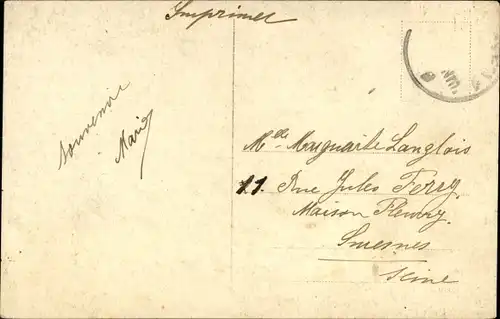 Imprimer
Souvenir
Marie
Melle Marguarite Langlois
11 Rue Jules Ferry
Maison Fleury
Suresnes
Seine